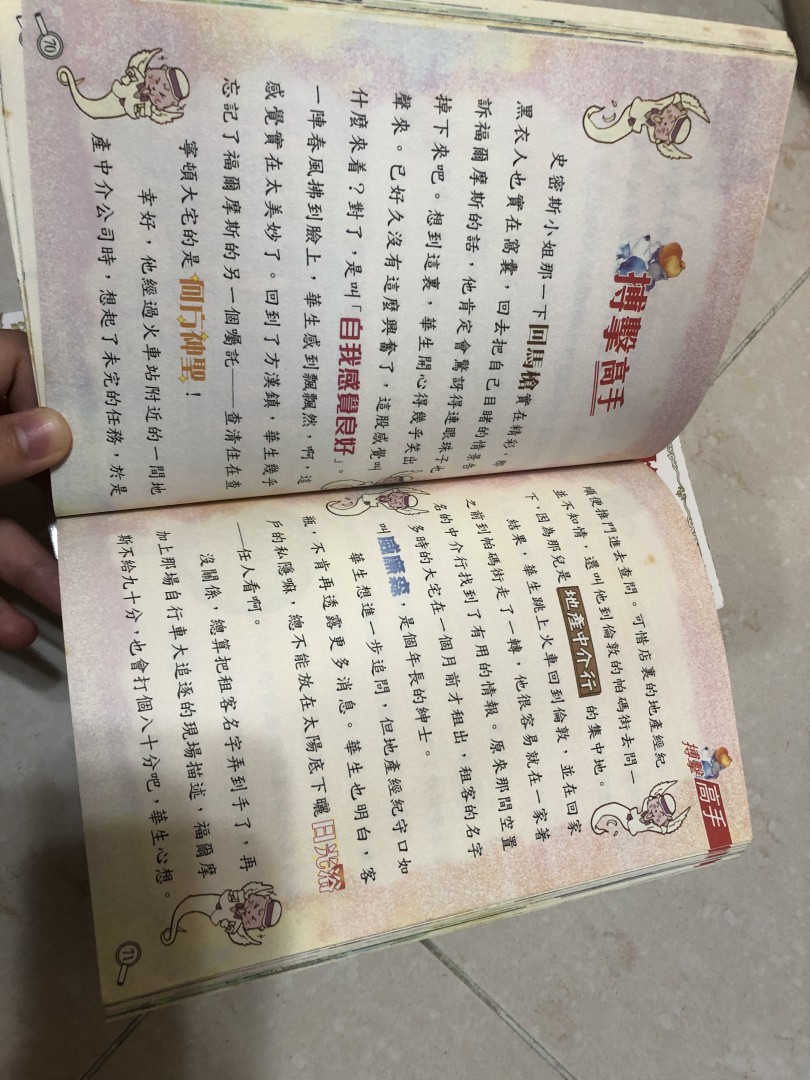 搏擊高手
史密斯小姐那一下回馬槍實在精彩,
黑衣人也實在窩囊,回去把自己目睹的情景告
訴福爾摩斯的話,他肯定會驚訝得連眼珠子也
掉下來吧。想到這裏,華生開心得幾乎笑出
聲來。已好久沒有這麼興奮了,這股感覺叫
什麼來着?對了,是叫「自我感覺良好」。
一陣春風拂到臉上,華生感到飄飄然,啊,這
感覺實在太美妙了。回到了方漢鎮,華生幾乎
忘記了福爾摩斯的另一個囑託——查清住在查
寧頓大宅的是何方神聖!
幸好,他經過火車站附近的一間地
產中介公司時,想起了未完的任務,於是
70
搏擊高手
順便推門進去查問。可惜店裏的地產經紀
並不知情,還叫他到倫敦的帕碼街去問一
下,因為那兒是地產中介行的集中地。
結果,華生跳上火車回到倫敦,並在回家
之前到帕碼街走了一轉,他很容易就在一家著
名的中介行找到了有用的情報。原來那間空置
多時的大宅在一個月前才租出,租客的名字
叫威廉森,是個年長的紳士。
華生想進一步追問,但地產經紀守口如
瓶,不肯再透露更多消息。華生也明白,客
戶的私隱嘛,總不能放在太陽底下曬日光浴
——任人看啊。
沒關係,總算把租客名字弄到手了,再
加上那場自行車大追逐的現場描述,福爾摩
斯不給九十分,也會打個八十分吧,華生心想。
71